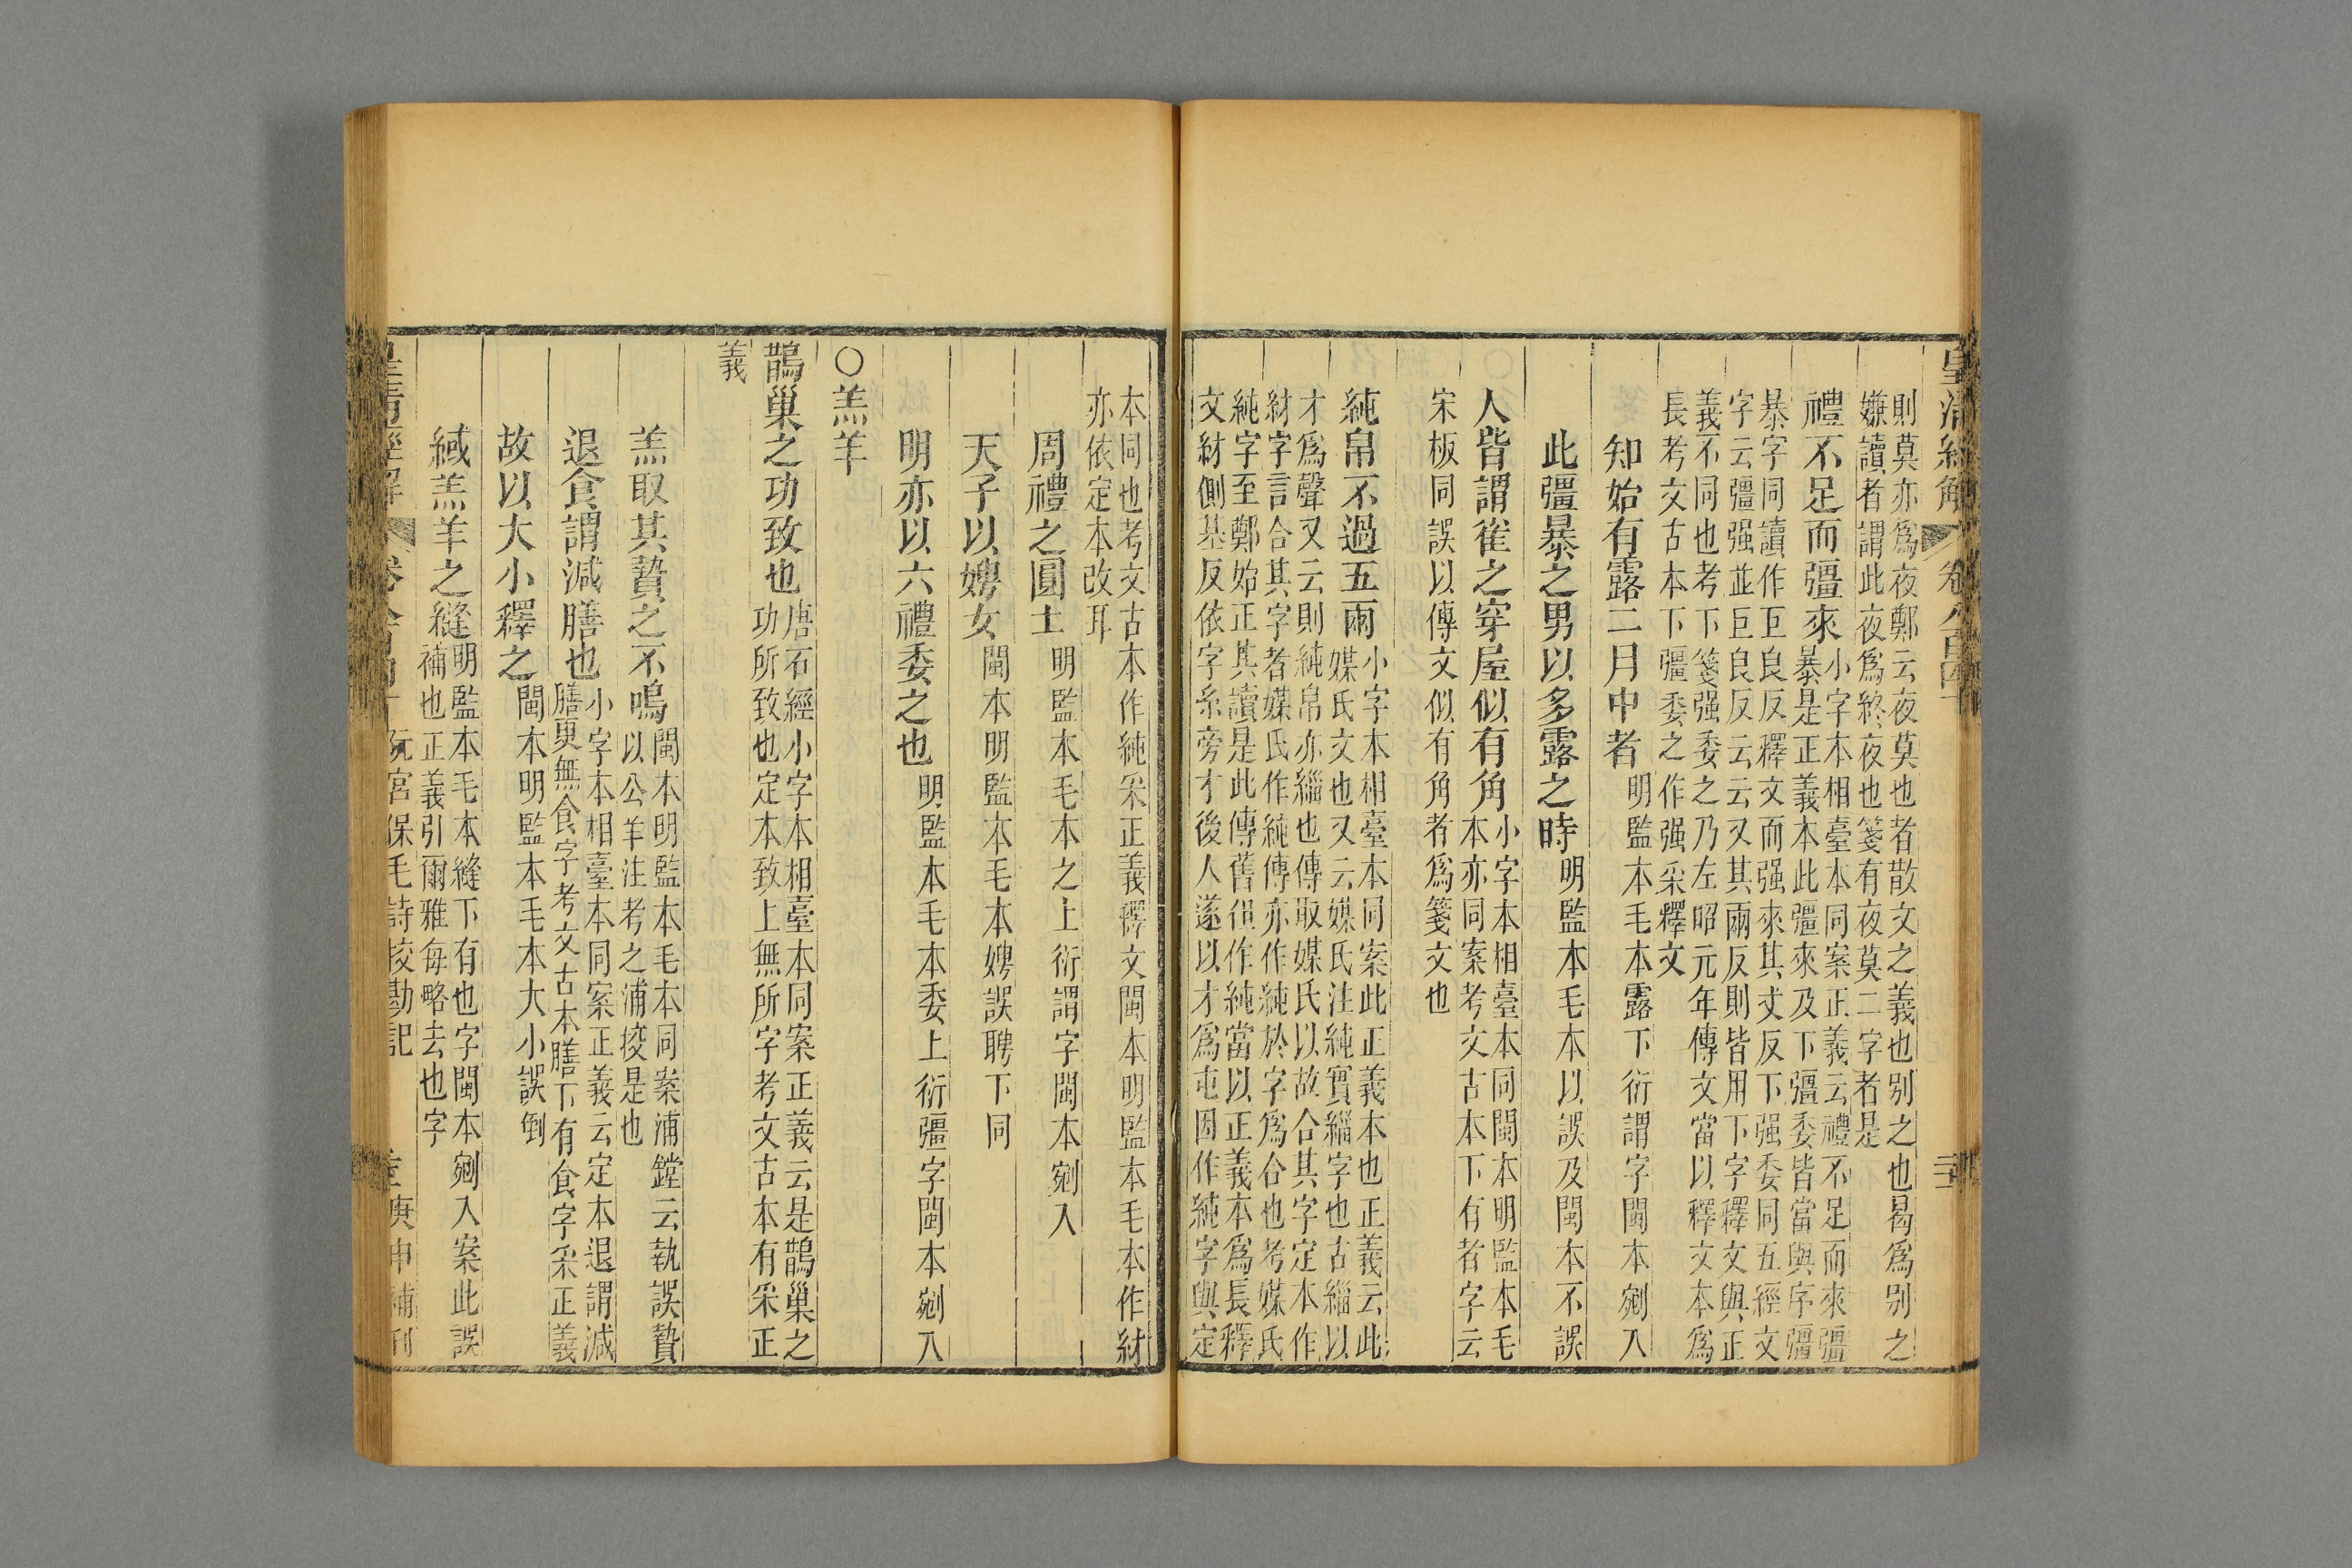 皇清經解 卷八百四十
則莫亦爲夜鄭云夜莫也者散文之義也别之也曷爲别之
嫌讀者謂此夜爲終夜也箋有夜莫二字者是
禮不足而彊來 小字本相臺本同案正義云禮不足而來彊
暴是正義本此彊來及下彊委皆當與序彊
暴字同讀作巨良反釋文而强來其丈反下强委同五經文
字云彊强並巨良反云云又其兩反則皆用下字釋文與正
義不同也考下箋强委之乃左昭元年傳文當以釋文本爲
長考文古本下彊委之作强采釋文
知始有露二月中者 明監本毛本露下衍謂字閩本剜入
此彊暴之男以多露之時 明監本毛本以誤及閩本不誤
人皆謂雀之穿屋似有角 小字本相臺本同閩本明監本毛
本亦同案考文古本下有者字云
宋板同誤以傳文似有角者爲箋文也
純帛不過五兩 小字本相臺本同案此正義本也正義云此
媒氏文也又云媒氏注純實緇字也古緇以
才爲聲又云則純帛亦緇也傳取媒氏以故合其字定本作
紂字言合其字者媒氏作純傳亦作純於字爲合也考媒氏
純字至鄭始正其讀是此傳舊但作純當以正義本爲長釋
文紂側基反依字糸旁才後人遂以才爲屯因作純字與定
本同也考文古本作純采正義釋文閩本明監本毛本作紂
亦依定本改耳
周禮之圜土 明監本毛本之上衍謂字閩本剜入
天子以娉女 閩本明監本毛本娉誤聘下同
明亦以六禮委之也 明監本毛本委上衍彊字閩本剜入
○羔羊
鵲巢之功致也 唐石經小字本相臺本同案正義云是鵲巢之
功所致也定本致上無所字考文古本有采正
義
羔取其贄之不鳴 閩本明監本毛本同案浦鏜云執誤贄
以公羊注考之浦挍是也
退食謂減膳也 小字本相臺本同案正義云定本退謂減
膳更無食字考文古本膳下有食字采正義
故以大小釋之 閩本明監本毛本大小誤倒
緎羔羊之縫 明監本毛本縫下有也字閩本剜入案此誤
補也正義引爾雅每略去也字
皇清經解 卷八百四十 阮宮保毛詩挍勘記 庚申補刊